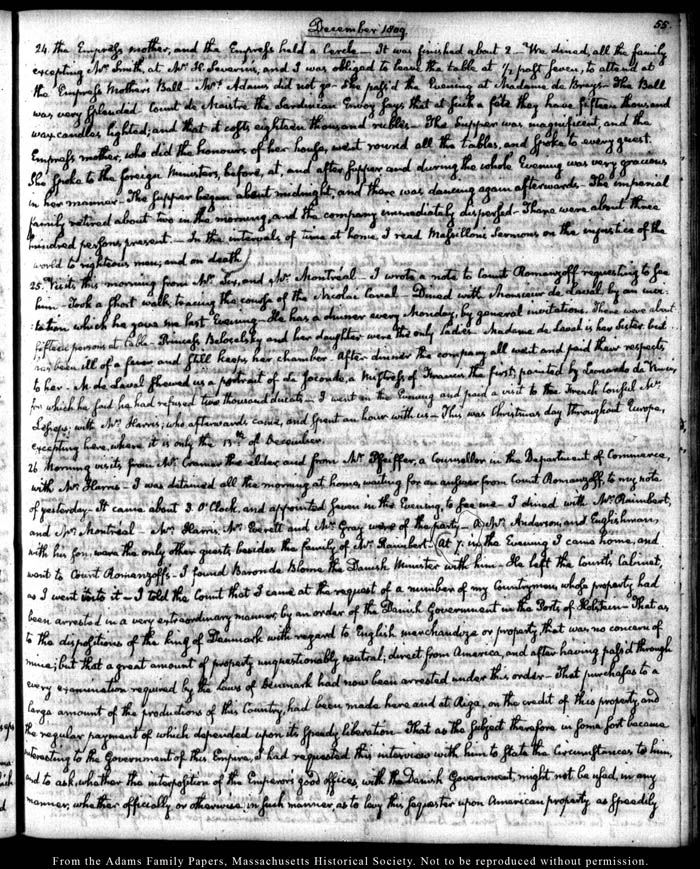 December 1809.
55.
24. the Empress mother, and the Empress held a Cercle — It was finished about 2 — We dined, all the family
excepting Mrs. Smith, at Mr. H. Severin's, and I was obliged to leave the table at ½ past seven, to attend at
the Empress Mother's Ball — Mrs. Adams did not go — She pass'd the Evening at Madame de Bray's — The Ball
was very splendid. Count de Maistre the Sardinian Envoy says that at such a fête they have fifteen thousand
wax candles lighted; and that it costs eighteen thousand rubles — The Supper was magnificent, and the
Empress mother, who did the honours of her house, went round all the tables, and spoke to every guest
She spoke to the foreign Ministers, before, at, and after supper and during the whole Evening was very gracious
in her manner — The supper began about midnight, and there was dancing again afterwards — The imperial
family retired about two in the morning, and the company immediately dispersed — There were about three
hundred persons present — In the intervals of time at home, I read Massillon's Sermons on the injustice of the
world to righteous men; and on death
25. Visits this morning from Mr. Six, and Mr. Montréal — I wrote a note to Count Romanzoff requesting to see
him — Took a short walk, tracing the course of the Nicolai Canal — Dined with Monsieur de Laval by an invi-
tation which he gave me last Evening — He has a dinner every Monday, by general invitations. There were about
fifteen persons at table. Princess Beloselsky and her daughter were the only Ladies. Madame de Laval is her Sister, but
has been ill of a fever and still keeps her chamber. After dinner the company all went and paid their respects
to her — M. de Laval shewed us a portrait of da Joconde, a Mistress of Francis the first, painted by Leonardo da Vinci,
for which he said he had refused two thousand ducats — I went in the Evening and paid a visit to the French Consul Mr.
Lesseps, with Mr. Harris; who afterwards came, and spent an hour with us — This was Christmas day throughout Europe,
excepting here, where it is only the 13th. of December.
26 Morning visits from Mr. Cramer the elder and from Mr. Pfeiffer, a Counsellor in the Department of Commerce,
with Mr. Harris — I was detained all the morning at home, waiting for an answer from Count Romanzoff, to my note
of yesterday — It came about 3. O'Clock, and appointed seven in the Evening, to see me — I dined with Mr. Raimbert,
and Mr. Montréal — Mr. Harris, Mr. Everett and Mr. Gray were of the party — A Mr. Anderson, and Englishman,
with his son, were the only other guests, besides the family of Mr. Raimbert — At 7. in the Evening I came home, and
went to Count Romanzoff's — I found Baron de Blome the Danish Minister with him — He left the Count's Cabinet,
as I went into it — I told the Count that I came at the request of a number of my Countrymen, whose property, had
been arrested in a very extraordinary manner, by an order of the Danish Government in the Ports of Holstein — That as
to the dispositions of the king of Denmark with regard to English merchandize or property, that was no concern of
mine; but that a great amount of property unquestionably neutral; direct from America, and after having pass'd through
every examination required by the laws of Denmark had now been arrested under this order — That purchases to a
large amount of the productions of this Country, had been made here and at Riga, on the credit of this property, and
the regular payment of which depended upon its speedy liberation — That as the subject therefore in some sort became
interesting to the Government of this Empire, I had requested this interview with him to state the circumstances to him,
and to ask, whether the interposition of the Emperor's good offices, with the Danish Government, might not be used, in any
manner, whether officially or otherwise, in such manner, as to lay this sequester upon American property, as speedily
From the Adams Family Papers, Massachusetts Historical Society. Not to be reproduced without permission.